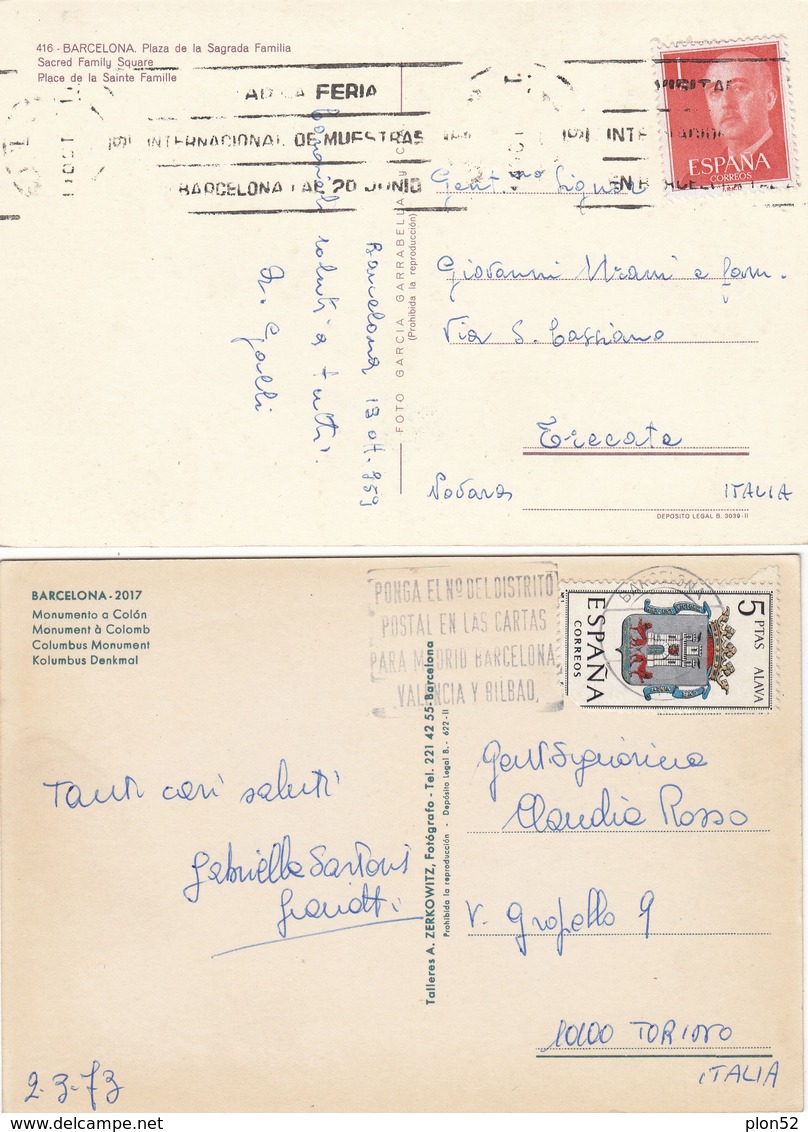 416 - BARCELONA. Plaza de la Sagrada Familia
Sacred Family Square
Place de la Sainte Famille
FERIA
INTERNACIONAL DE MUESTRAS
BARCELONA 1 AL 20 JUNIO
ESPAÑA
CORREOS
saluti a tutti.
Barcelona 19 ott. 959
FOTO GARCIA GARRABELLA y Cía.
(Prohibida la reproducción)
Gent.mo Signor
Giovanni Urani e fam.
Via S. Cassiano
Trecate
Novara
ITALIA
DEPOSITO LEGAL B. 3039-II
BARCELONA - 2017
Monumento a Colón
Monument à Colomb
Columbus Monument
Kolumbus Denkmal
PONGA EL Nº DEL DISTRITO
POSTAL EN LAS CARTAS
PARA MADRID BARCELONA
VALENCIA Y BILBAO.
BARCELONA
5 PTAS
ALAVA
ESPAÑA
CORREOS
Tanti cari saluti
Gabriella Sartoris
Talleres A. ZERKOWITZ, Fotógrafo - Tel. 221 42 55 - Barcelona
Prohibida la reproducción - Depósito Legal B. - 622-II
Gent. Signorina
Claudia Rosso
V. Gropello 9
10100 TORINO
ITALIA
2-3-73
plon52